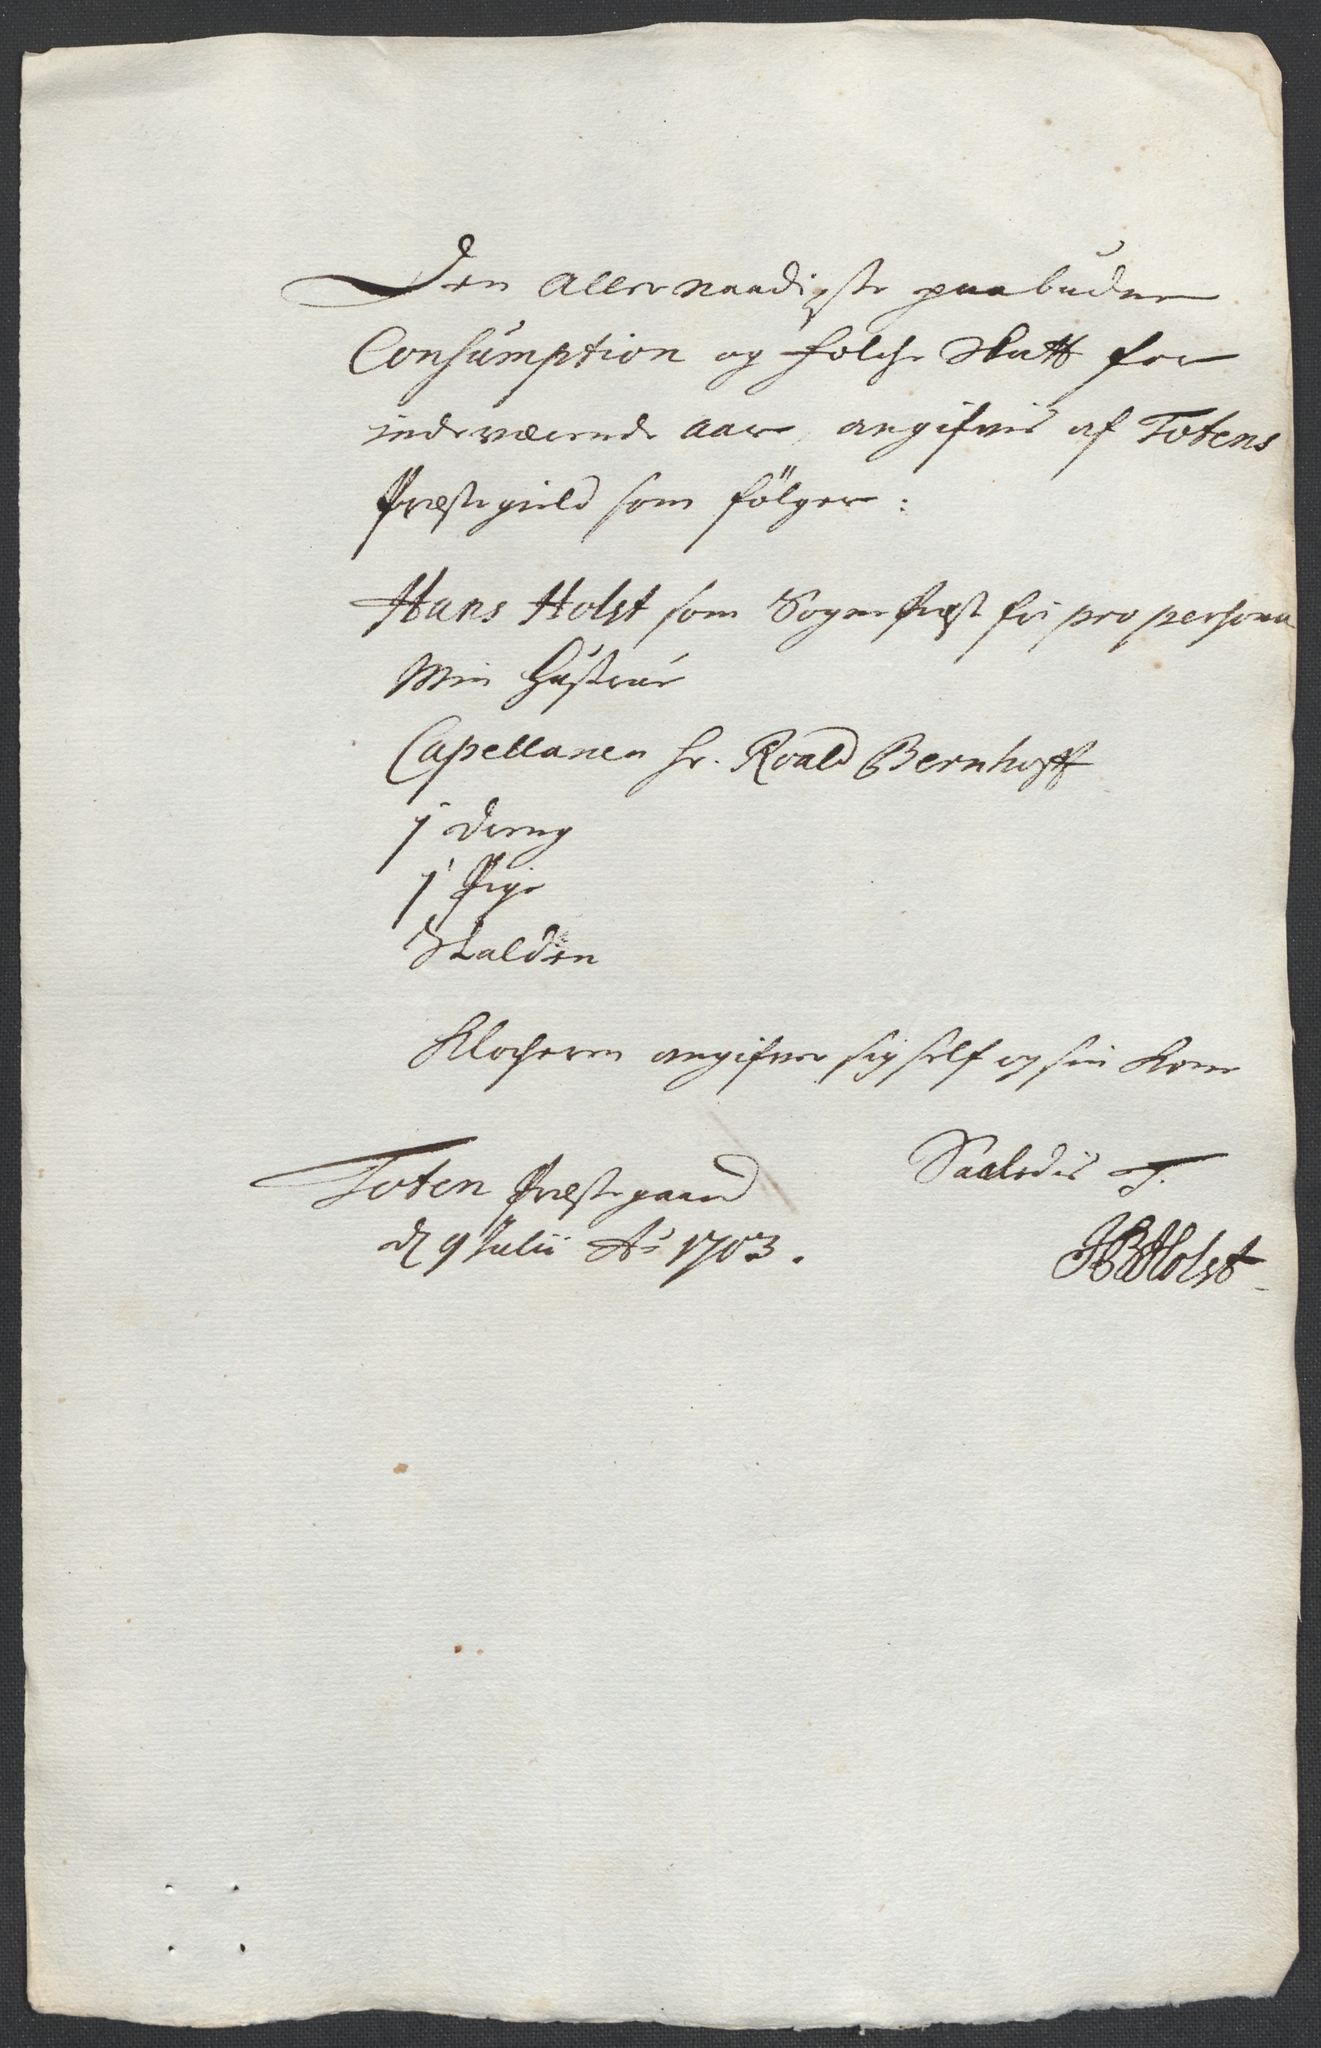 Den Allernaadigste paabudne
Consumption og Folche Skatt for
inderværende aar, angifvis af Totens
Præstegield som fölger:
Hans Holst som Sognepræst for pro persona
Min Hustrue
Capellanen hr. Roald Bernhofft
1 dreng
1 Pige
Klocheren angifver sig self og sin Kone
Toten Præstegaard
d 9 Julii Ao 1703.
Saaledis T.
HBHolst